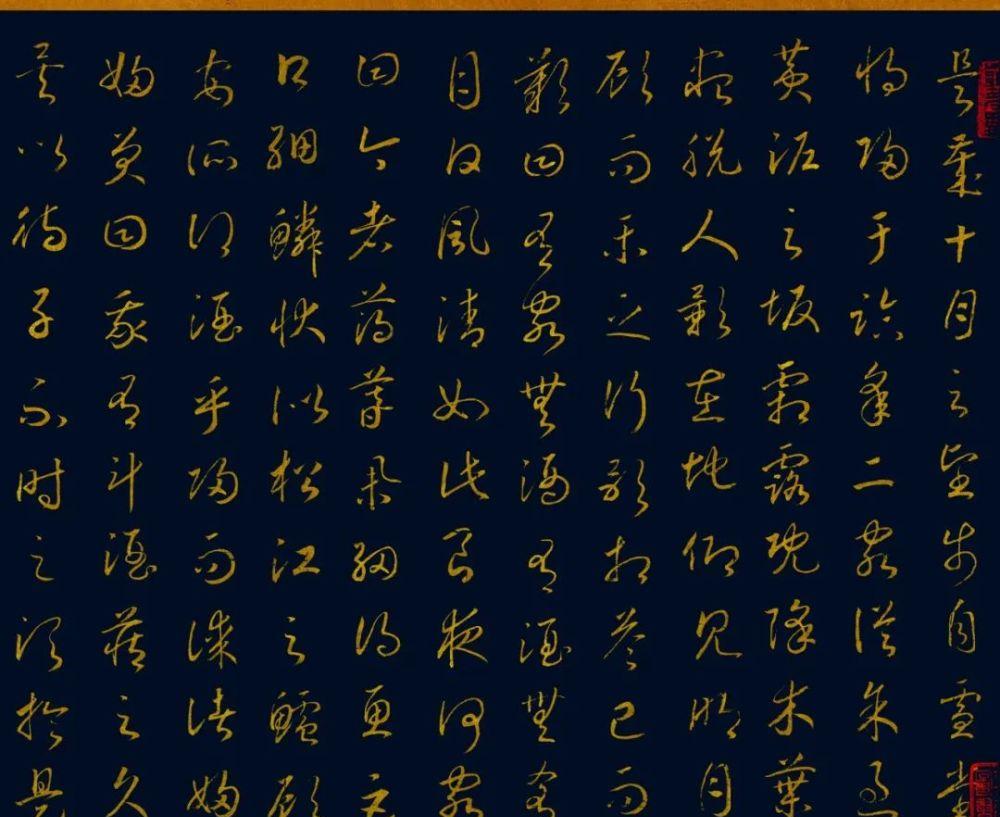 是歲十月之望步自雪堂
將歸于臨皋二客從余過
黃泥之坂霜露既降木葉
盡脫人影在地仰見明月
顧而樂之行歌相答已而
歎曰有客無酒有酒無肴
月白風清如此良夜何客
曰今者薄暮舉網得魚巨
口細鱗狀似松江之鱸顧
安所得酒乎歸而謀諸婦
婦曰我有斗酒藏之久
矣以待子不時之須於是